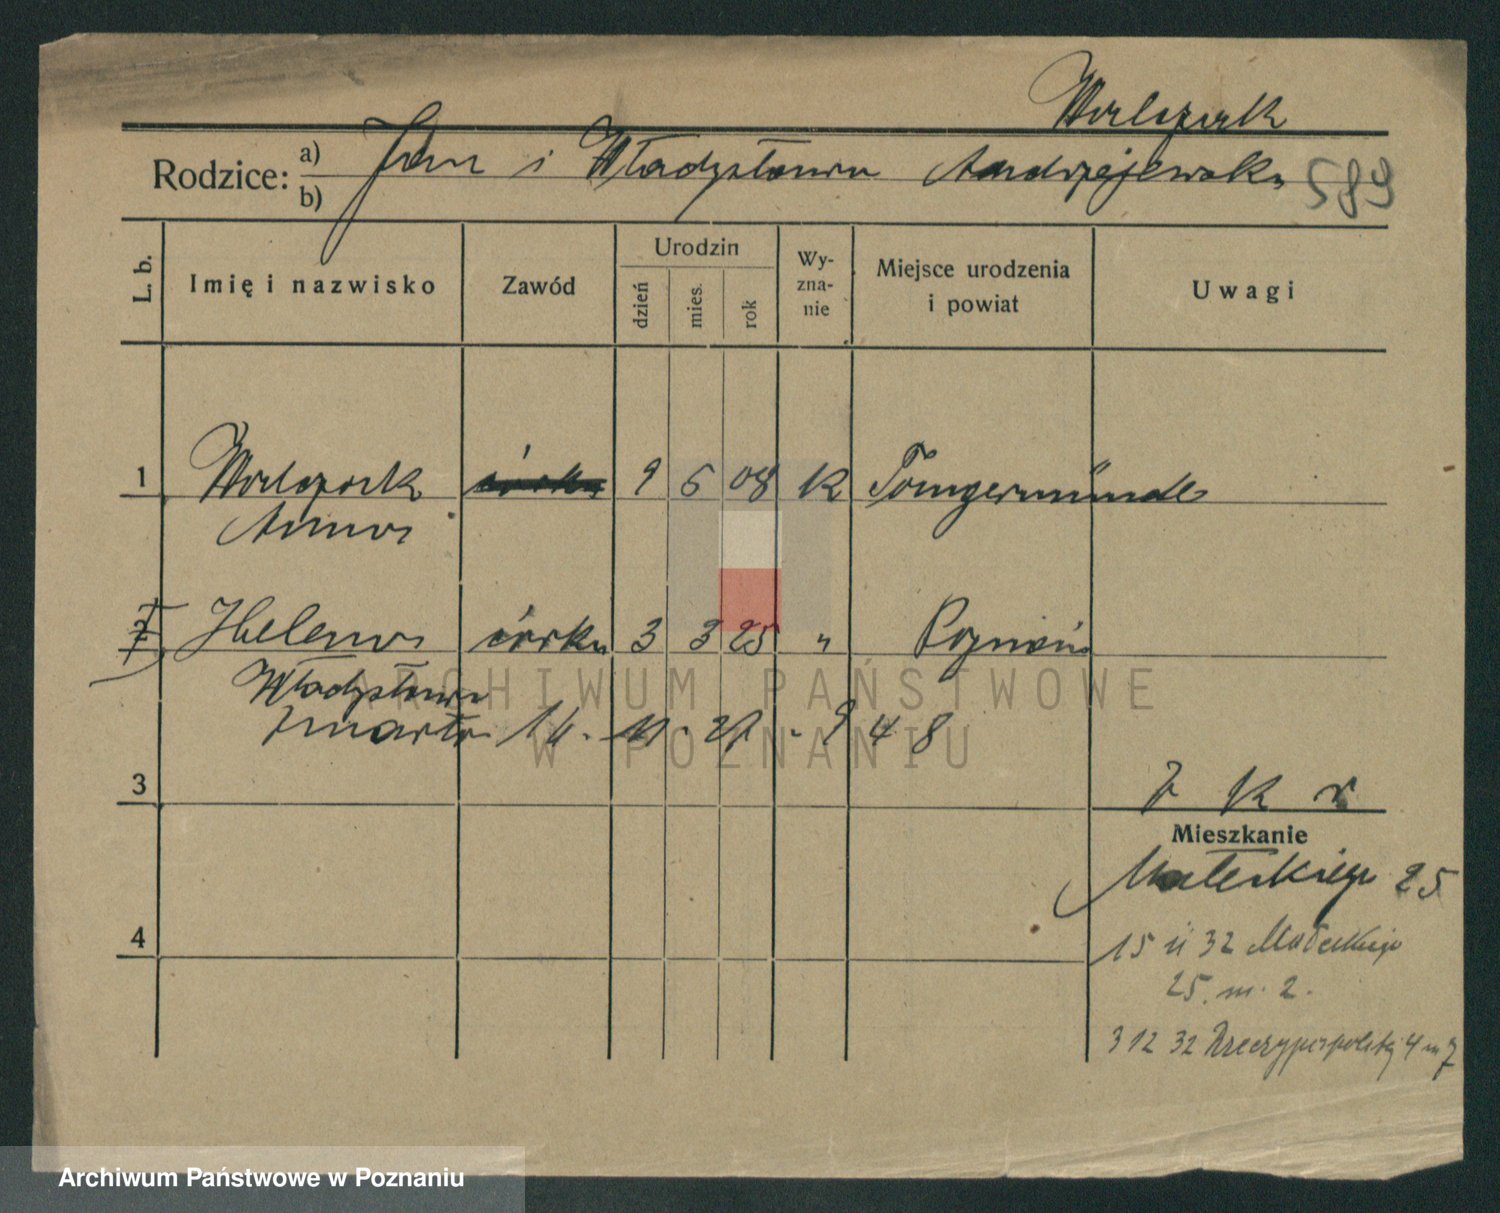 Walczak
Rodzice: a) Jan i Władysława Andrzejewska 589
b)
L. b. Imię i nazwisko Zawód Urodzin dzień mies. rok Wy-zna-nie Miejsce urodzenia i powiat Uwagi
1 Walczak córka 9 5 08 K Tangermünde
Anna
2 Helena córka 3 3 25 " Poznań
Władysława
zmarła 14. 11. 27. - 948
ARCHIWUM PAŃSTWOWE
W POZNANIU
3
Mieszkanie
Małeckiego 25
4
15 11 32 Małeckiego
25. m. 2.
3 12 32 Rzeczypospolitej 4 m 7
Archiwum Państwowe w Poznaniu